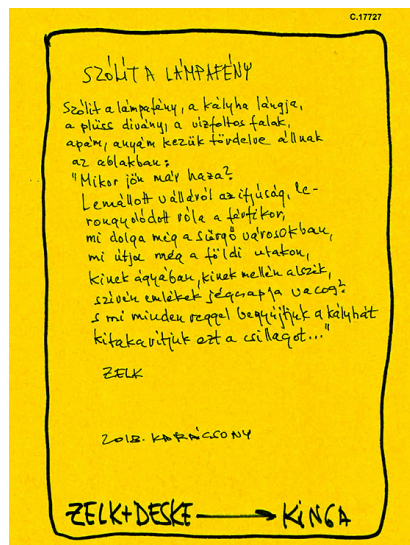 C.17727
SZÓLÍT A LÁMPAFÉNY
Szólít a lámpafény, a kályha lángja,
a plüss divány, a vizfoltos falak,
apám, anyám kezük tördelve állnak
az ablakban:
"Mikor jön már haza?
Lemállott válláról az ifjúság, le-
rongyolódott róla a férfikor,
mi dolga még a sürgő városokban,
mi útja még a földi utakon,
kinek ágyában, kinek mellén alszik,
szivén emlékek jégcsapja vacog?
s mi minden reggel begyújtjuk a kályhát
kitakarítjuk ezt a csillagot..."
ZELK
2018. KARÁCSONY
ZELK+DESKE → KINGA